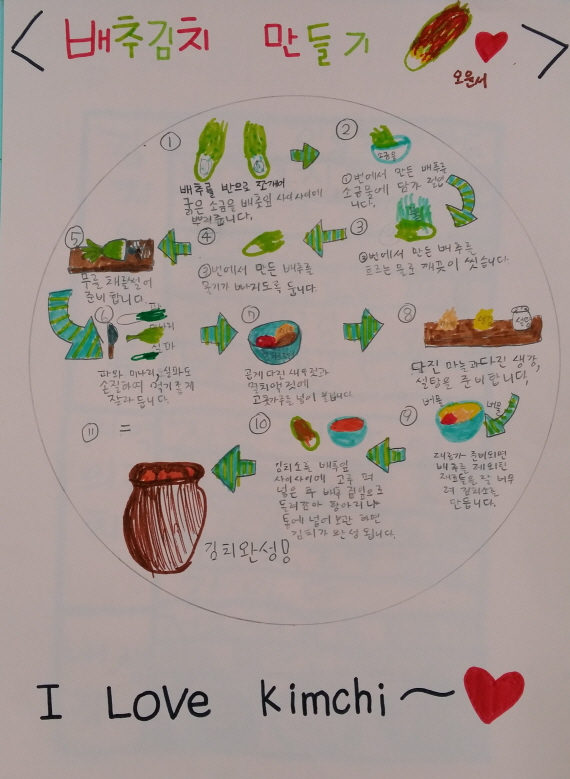 <배추김치 만들기>
오윤서
①
배추를 반으로 쪼개어
굵은 소금을 배춧잎 사이사이에
뿌려줍니다.
②
소금물
①번에서 만든 배추를
소금물에 담가 절입
니다.
③
②번에서 만든 배추를
흐르는 물로 깨끗이 씻습니다.
④
③번에서 만든 배추를
물기가 빠지도록 둡니다.
⑤
무를 채를썰어
준비 합니다.
⑥
파
미나리
실파
파와 미나리, 실파도
손질하여 먹기좋게
잘라둡니다.
⑦
곱게 다진 새우젓과
멸치액젓에
고춧가루를 넣어 불립니다.
⑧
설탕
다진 마늘과다진 생강,
설탕을 준비합니다.
⑨
버무
버물
재료가 준비되면
배추를 제외한
재료들을 잘 버무
려 김치소를
만듭니다.
⑩
김치소를 배춧잎
사이사이에 고루 펴
넣은 후 배추 겉잎으로
돌려감아 항아리나
통에 넣어 보관 하면
김치가 완성 됩니다.
⑪ =
김치완성!
I LOVE kimchi~